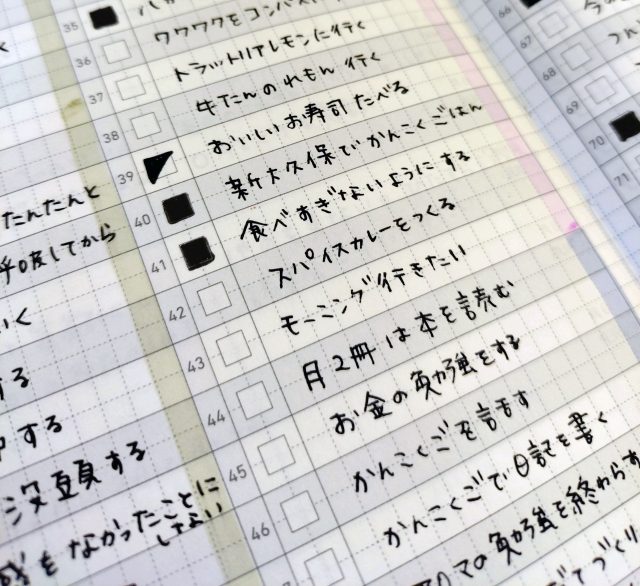 たんたんと
してから
く
する
する
没頭する
もなかったことに
しない
35
36 ワクワクをコンパ
37 トラットリアレモンに行く
38 牛たんのれもん 行く
39 おいしいお寿司たべる
40 新大久保でかんこくごはん
41 食べすぎないようにする
42 スパイスカレーをつくる
43 モーニング行きたい
44 月2冊は本を読む
45 お金の勉強をする
46 かんこくごを話す
かんこくごで日記を書く
マの勉強を終わらす
づくり
66
67
68
69
70
71